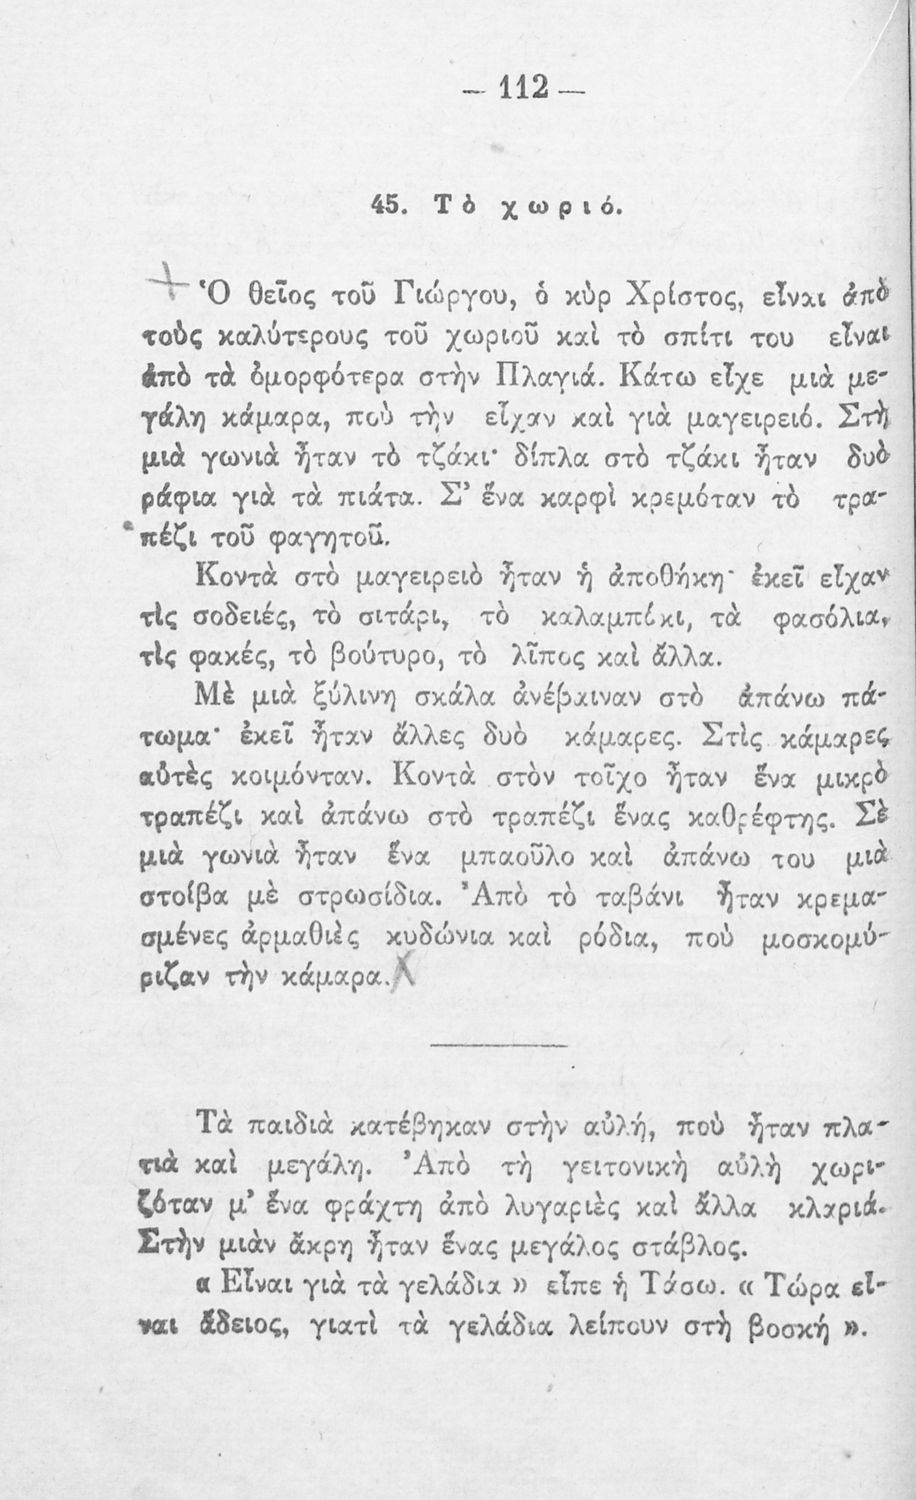 — 112 —
45. Τὸ χωριό.
Ὁ θεῖος τοῦ Γιώργου, ὁ κὺρ Χρίστος, εἶναι ἀπὸ
τοὺς καλύτερους τοῦ χωριοῦ καὶ τὸ σπίτι του εἶναι
ἀπὸ τὰ ὀμορφότερα στὴν Πλαγιά. Κάτω εἶχε μιὰ με-
γάλη κάμαρα, ποὺ τὴν εἶχαν καὶ γιὰ μαγειρειό. Στὴ
μιὰ γωνιὰ ἦταν τὸ τζάκι· δίπλα στὸ τζάκι ἦταν δυὸ
ράφια γιὰ τὰ πιάτα. Σ’ ἕνα καρφὶ κρεμόταν τὸ τρα-
πέζι τοῦ φαγητοῦ.
Κοντὰ στὸ μαγειρειὸ ἦταν ἡ ἀποθήκη· ἐκεῖ εἶχαν
τὶς σοδειές, τὸ σιτάρι, τὸ καλαμπόκι, τὰ φασόλια,
τὶς φακές, τὸ βούτυρο, τὸ λῖπος καὶ ἄλλα.
Μὲ μιὰ ξύλινη σκάλα ἀνέβαιναν στὸ ἀπάνω πά-
τωμα· ἐκεῖ ἦταν ἄλλες δυὸ κάμαρες. Στὶς κάμαρες
αὐτὲς κοιμόνταν. Κοντὰ στὸν τοῖχο ἦταν ἕνα μικρὸ
τραπέζι καὶ ἀπάνω στὸ τραπέζι ἕνας καθρέφτης. Σὲ
μιὰ γωνιὰ ἦταν ἕνα μπαοῦλο καὶ ἀπάνω του μιὰ
στοίβα μὲ στρωσίδια. Ἀπὸ τὸ ταβάνι ἦταν κρεμα-
σμένες ἀρμαθιὲς κυδώνια καὶ ρόδια, ποὺ μοσκομύ-
ριζαν τὴν κάμαρα.
Τὰ παιδιὰ κατέβηκαν στὴν αὐλή, ποὺ ἦταν πλα-
τιὰ καὶ μεγάλη. Ἀπὸ τὴ γειτονικὴ αὐλὴ χωρι-
ζόταν μ’ ἕνα φράχτη ἀπὸ λυγαριὲς καὶ ἄλλα κλαριά.
Στὴν μιὰν ἄκρη ἦταν ἕνας μεγάλος στάβλος.
« Εἶναι γιὰ τὰ γελάδια » εἶπε ἡ Τάσω. « Τώρα εἶ-
ναι ἄδειος, γιατὶ τὰ γελάδια λείπουν στὴ βοσκή ».